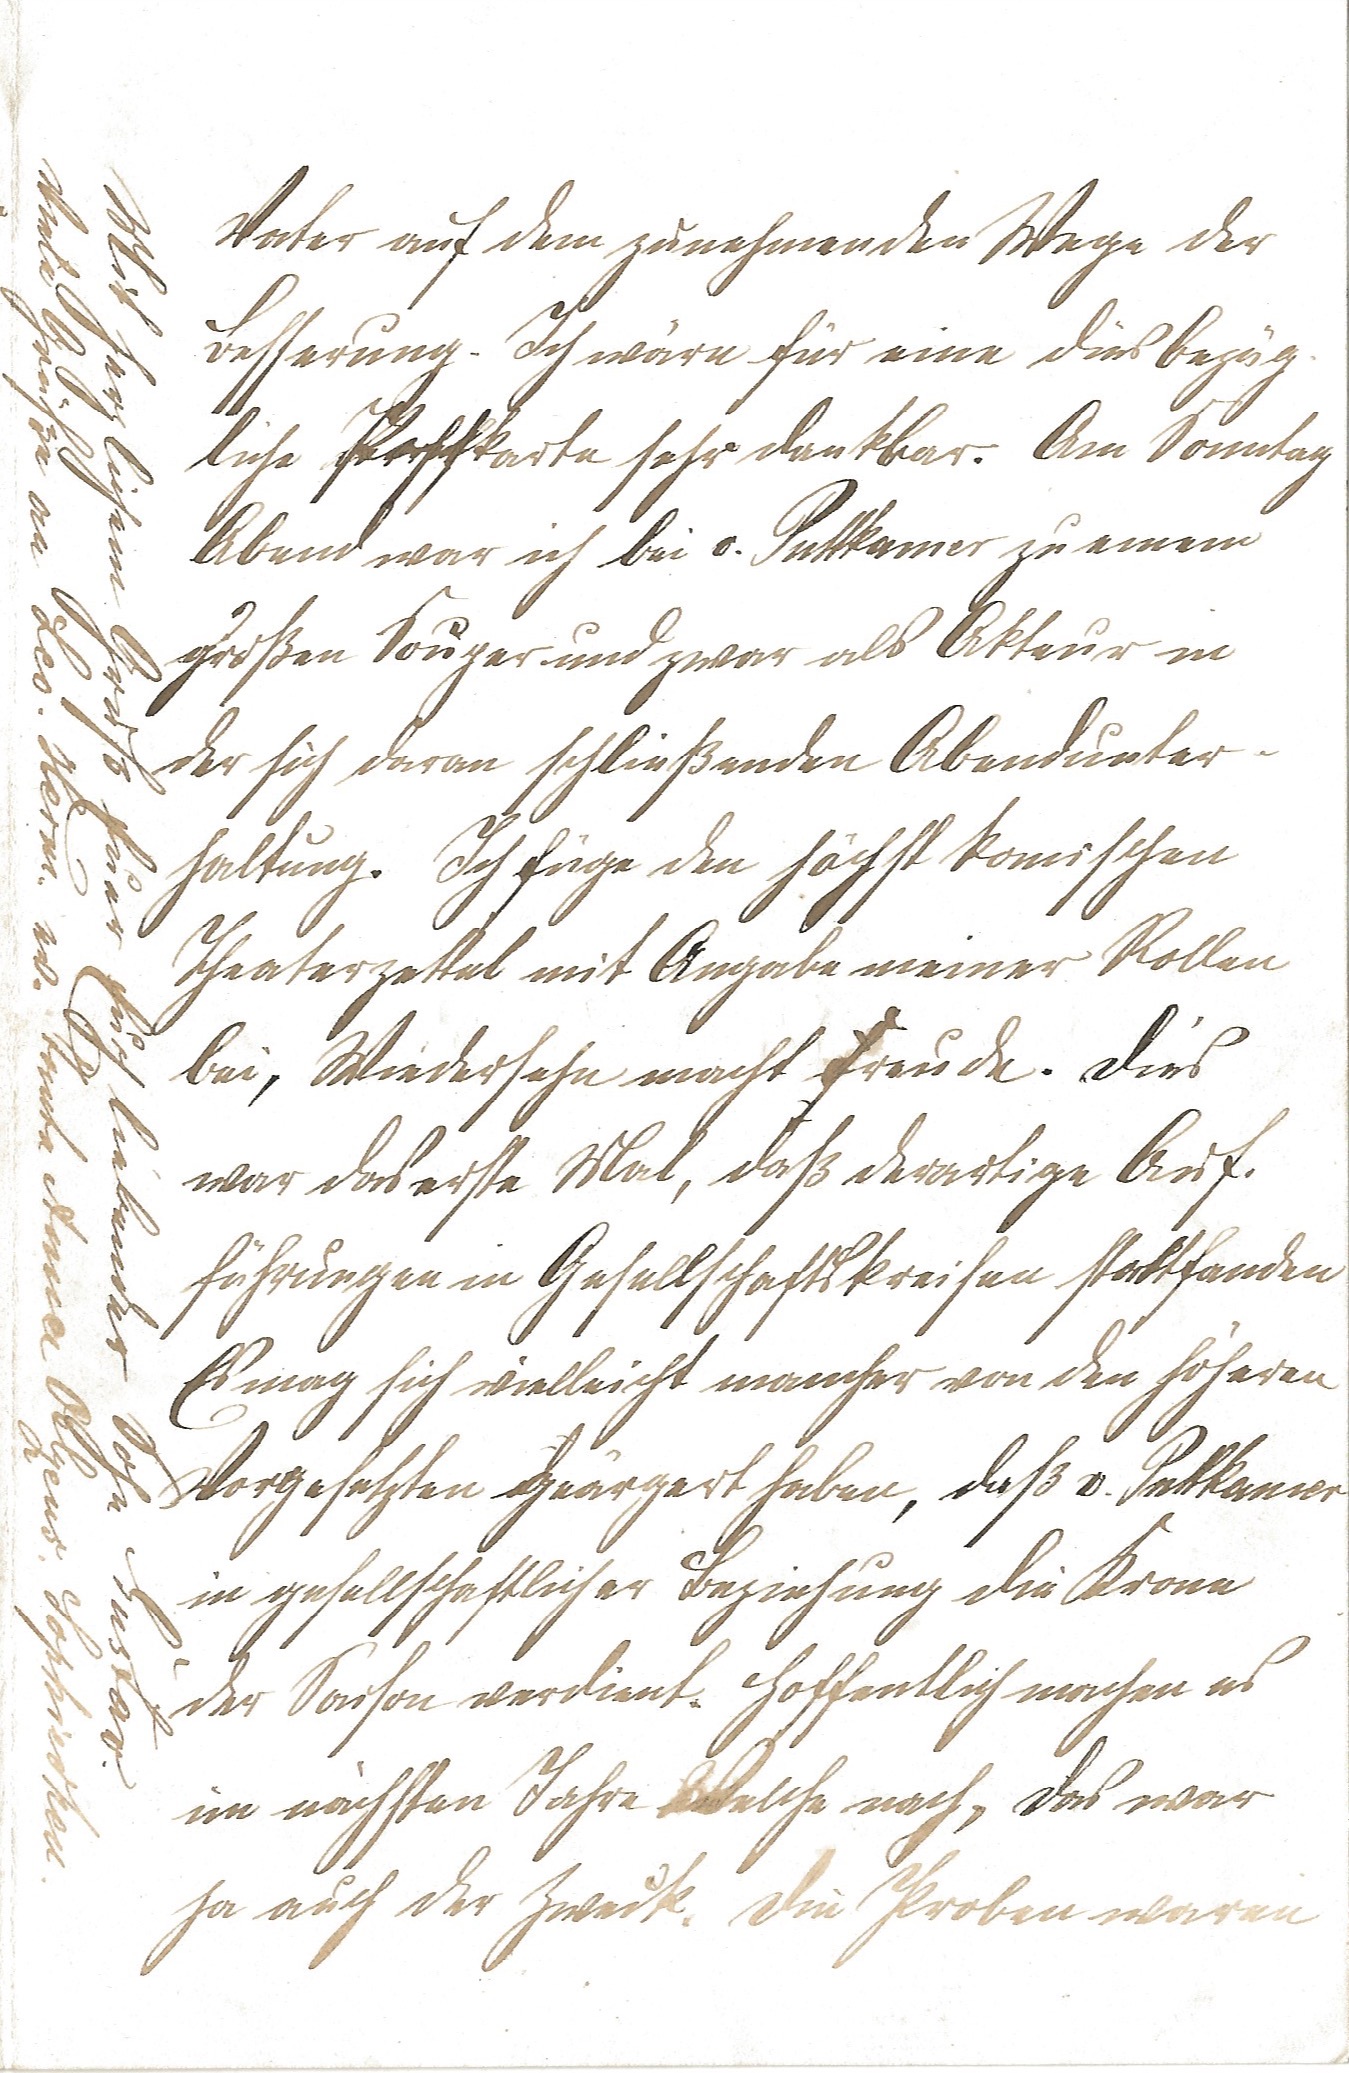 Vater auf dem zunehmenden Wege der
Besserung. Ich wäre für eine diesbezüg-
liche Postkarte sehr dankbar. Am Sonntag
Abend war ich bei v. Puttkamer zu einem
großen Souper und zwar als Akteur in
der sich daran schließenden Abendunter-
haltung. Ich füge den höchst komischen
Theaterzettel mit Angabe meiner Rollen
bei, Wiedersehn macht Freude. Dies
war das erste Mal, daß derartige Auf-
führungen in Gesellschaftskreisen stattfanden
Es mag sich vielleicht mancher von den höheren
Vorgesetzten geärgert haben, daß v. Puttkamer
in gesellschaftlicher Beziehung die Krone
der Saison verdient. Hoffentlich machen es
im nächsten Jahre Welche nach, das war
ja auch der Zweck. Die Proben waren
Mit herzlichem Gruß Euer Euch liebender Sohn Gustav.
Viele Grüße an Leo. Herm. u. Tante Anna